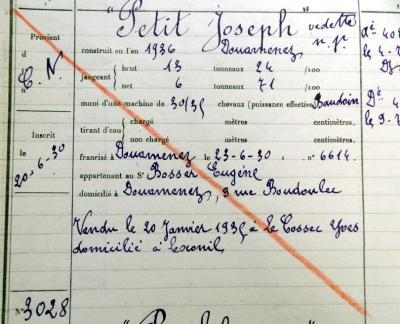 "Petit Joseph" vedette
n.p.
Provient
d
C. N.
construit en l'an 1936 Douarnenez
jaugeant
brut 13 tonneaux 24 /100
net 6 tonneaux 71 /100
muni d'une machine de 30/35 chevaux (puissance effective) Baudoin
tirant d'eau
chargé mètres centimètres.
non chargé mètres centimètres.
Inscrit
le
20-6-30
francisé à Douarnenez le 23-6-30, n° 6614.
appartenant au Sr Bosser Eugène
domicilié à Douarnenez, 8 rue Boudoulec
Vendu le 20 Janvier 1935 à Le Cossec Yves
domicilié à Lesconil
N° 3028